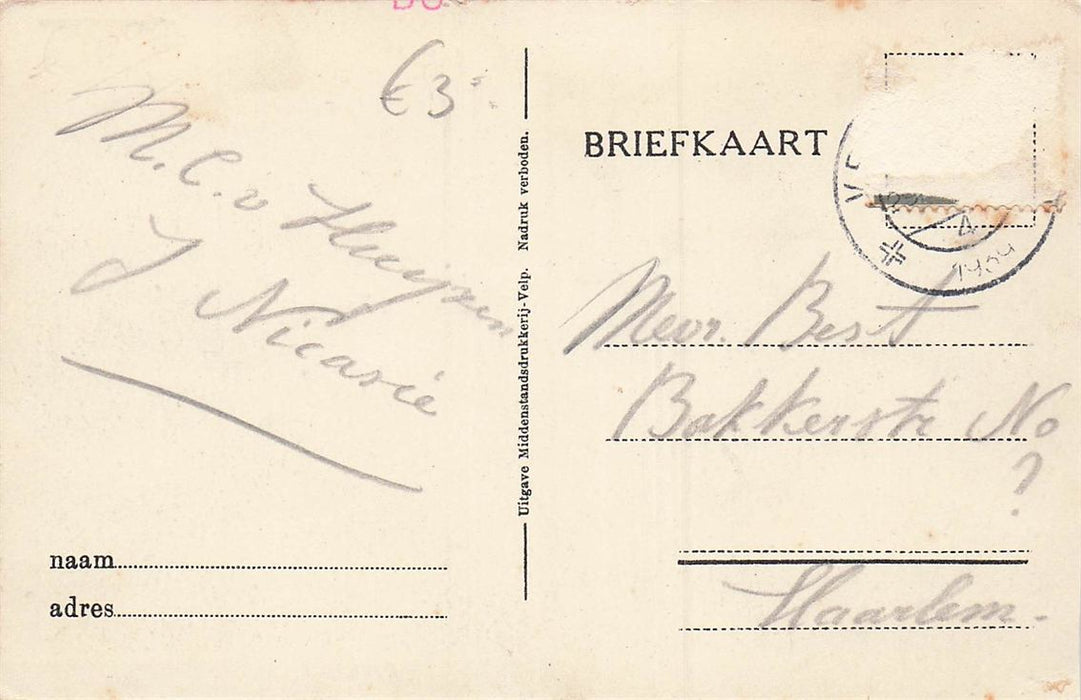 €3
M. C. v Huijsen
J Nicasie
naam
adres
Uitgave Middenstandsdrukkerij-Velp. Nadruk verboden.
BRIEFKAART
VE
4
1934
Mevr. Best
Bakkerstr No
?
Haarlem.